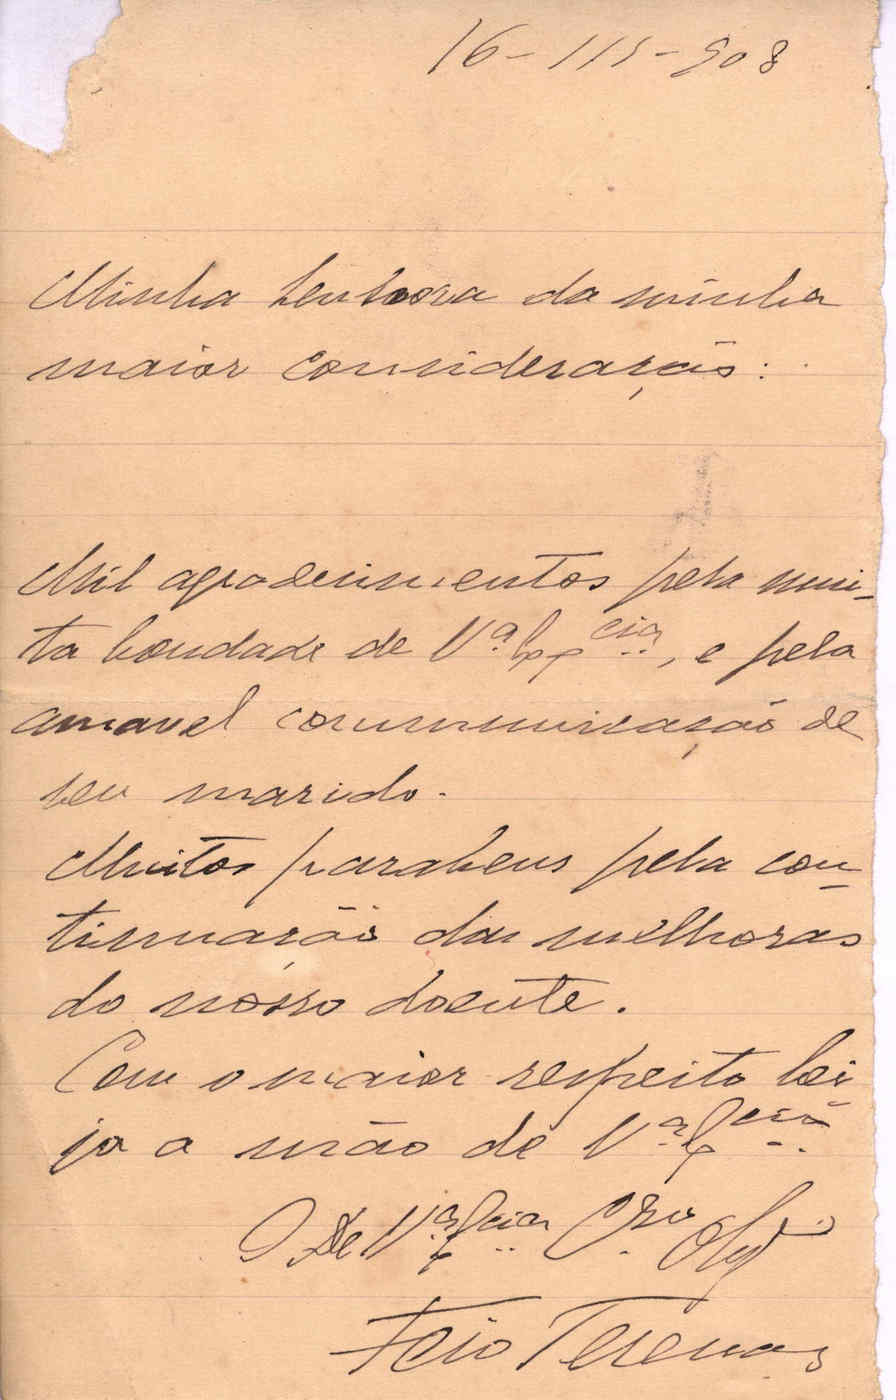 16-III-908
Minha senhora da minha
maior consideração:
Mil agradecimentos pela mui-
ta bondade de V.ª Ex.cia, e pela
amavel communicação de
seu marido.
Muitos parabens pela con-
tinuação das melhoras
do nósso doente.
Com o maior respeito bei-
ja a mão de V.ª Ex.cia
De V.ª Ex.cia Cr.do
Feio Terenas